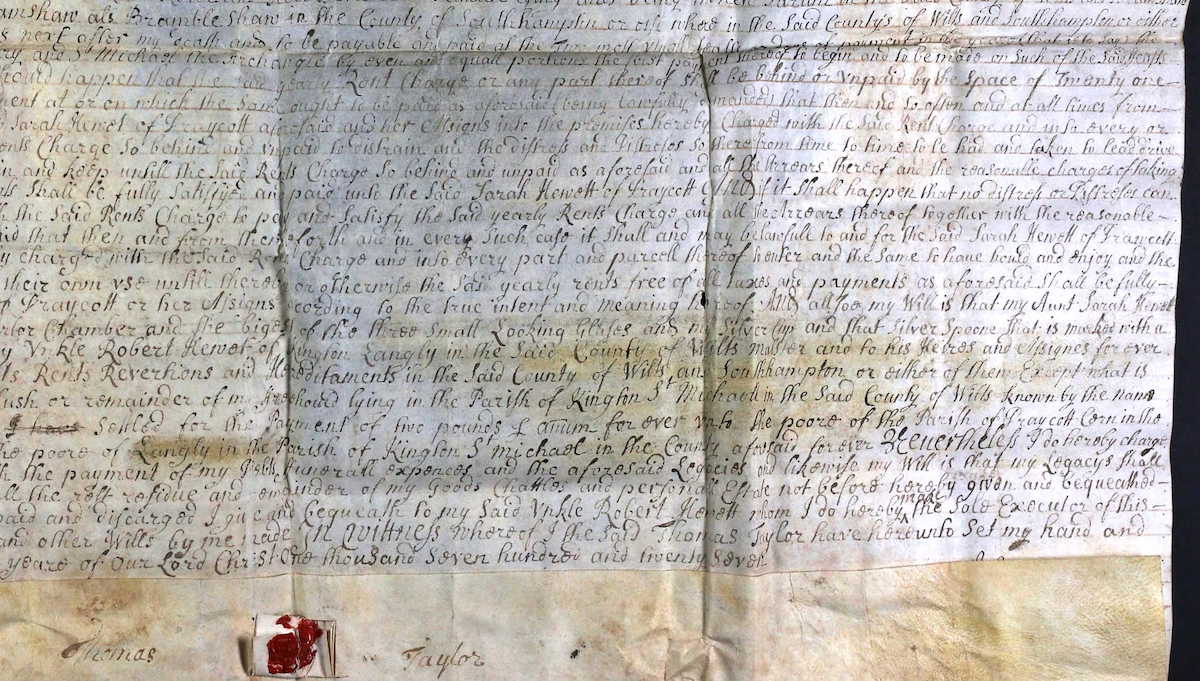 als Bramble shaw in the County of Southhampton or else where in the Said County's of Wilts and Southhampton or either
next after my death and to be payable and paid at the Two most Usual
and St Michael the Archangle by even and equall portions the first payment thereof to begin and to be made on Such of the Said feasts
happen that the said yearly Rent Charge or any part thereof shall be behind or Unpaid by the Space of Twenty one
at or on which the Same ought to be paid as aforesaid (being lawfully demanded that then and so often and at all times from
Sarah Hewet of Draycott aforesaid and her Assigns into the premises hereby Charged with the Said Rent Charge and into every or
Rents Charge So behind and unpaid to distrain and the distress and distresses so there from time to time to be had and taken to lead drive
and keep untill the Said Rents Charge So behind and unpaid as aforesaid and all the Arrears thereof and the reasonable charges of taking
Shall be fully Satisfyed and paid unto the Said Sarah Hewett of Draycott And if it Shall happen that no distress or Distresses can
the Said Rents Charge to pay and Satisfy the Said yearly Rents Charge and all the Arrears thereof together with the reasonable
that then and from thenceforth and in every Such case it Shall and may be lawfull to and for the Said Sarah Hewett of Draycott
charged with the Said Rent Charge and into every part and parcell thereof to enter and the Same to have hould and enjoy and the
their own vse untill thereby or otherwise the Said yearly rents free of all taxes and payments as aforesaid Shall be fully
Draycott or her Assigns according to the true intent and meaning hereof And allsoe my Will is that my Aunt Sarah Hewet
Chamber and the bigest of the three Small Looking Glases and my Silver Cup and that Silver Spoone that is marked with a
Vnkle Robert Hewet of Kington Langly in the Said County of Wilts Malster and to his Heires and Assignes for ever
Rents Revertions and Hereditaments in the Said County of Wilts and Southhampton or either of them Except what is
or remainder of my Freehould lying in the Parish of Kington St Michaell in the Said County of Wilts Known by the Name
I have Setled for the Payment of two pounds p anum for ever vnto the poore of the Parish of Draycott Cern in the
the poore of Langly in the Parish of Kington St michael in the County aforsaid for ever Nevertheless I do hereby charge
the payment of my Debts Funerall expences and the aforesaid Legacies and likewise my Will is that my Legacys Shall
all the rest residue and remainder of my Goods Chattles and personall Estate not before hereby given and bequeathed
paid and discharged I give and bequeath to my Said Vnkle Robert Hewett whom I do hereby make the Sole Executor of this
and other Wills by me made In Wittness whereof I the Said Thomas Taylor have herevnto Set my hand and
yeare of Our Lord Christ One thousand Seven hundred and twenty Seven
Thomas Taylor